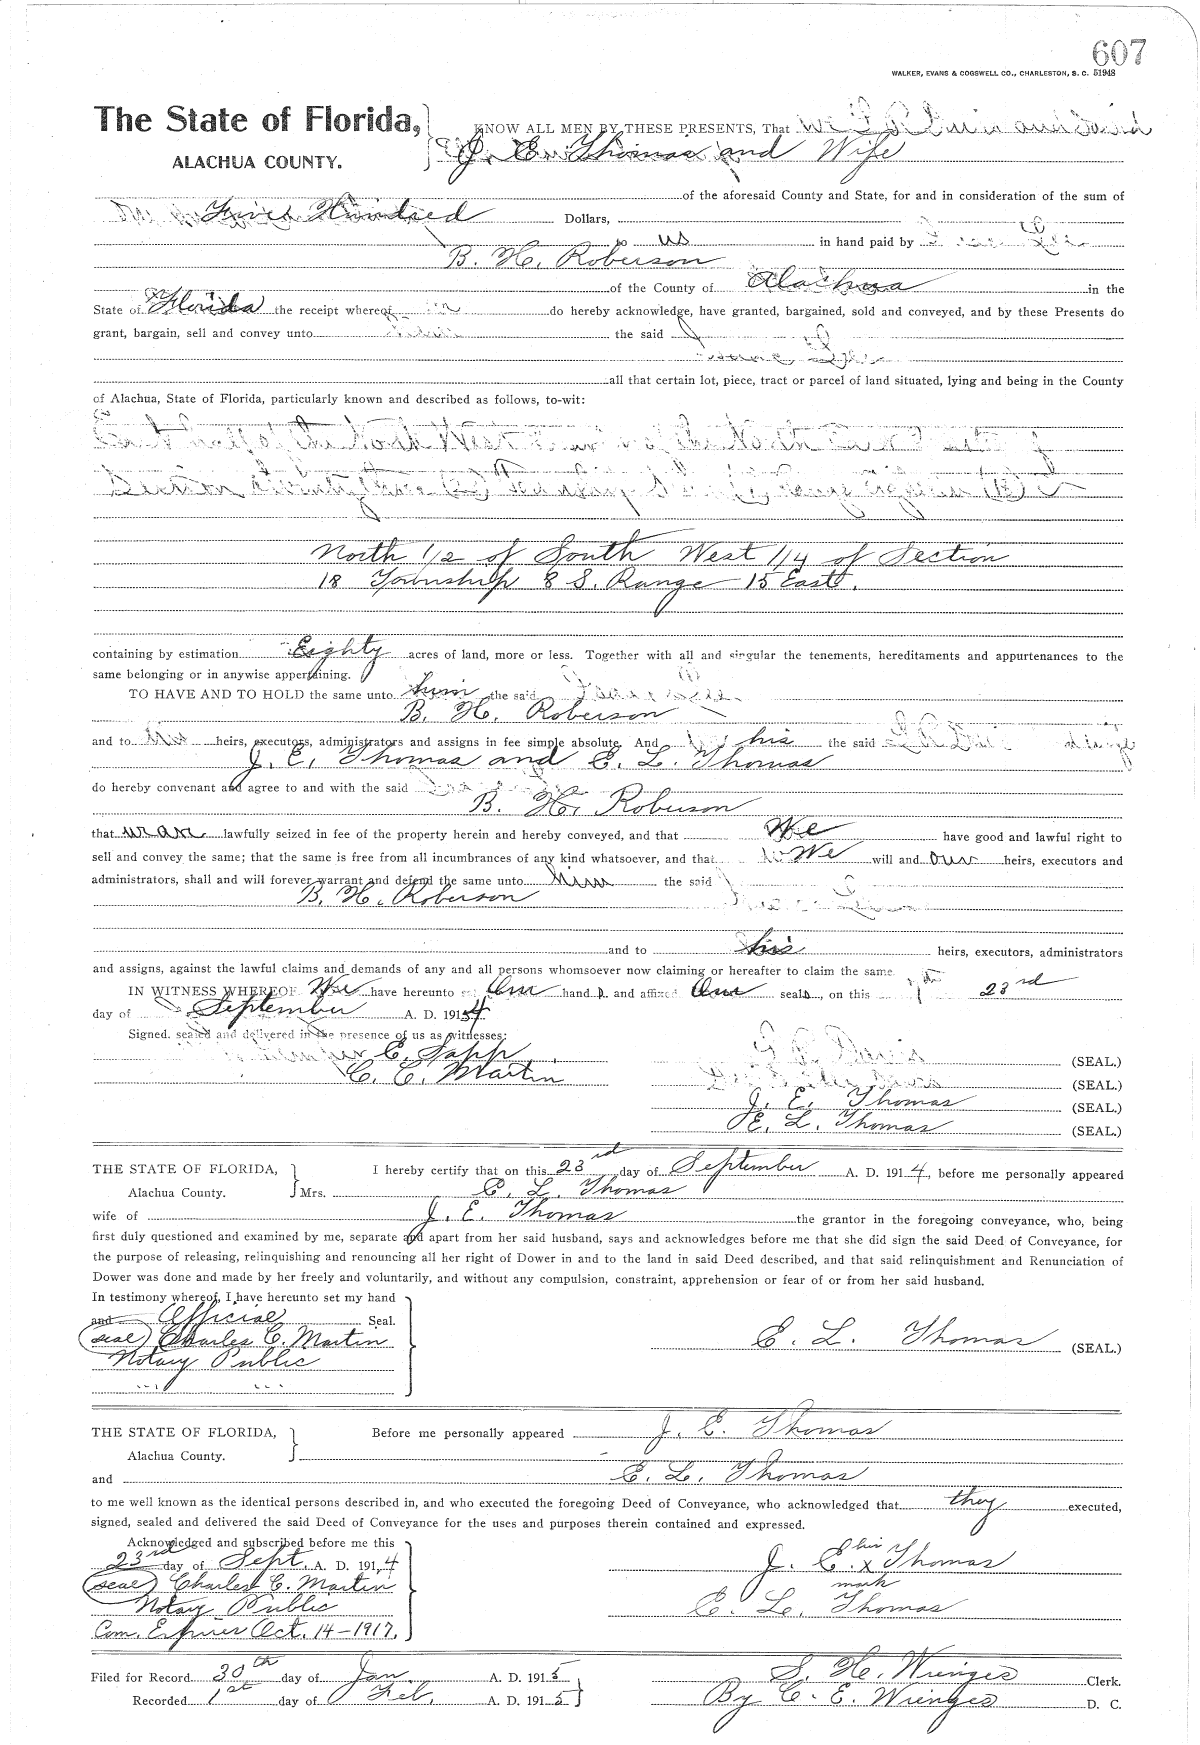 607
WALKER, EVANS & COGSWELL CO., CHARLESTON, S. C. 51948
The State of Florida,
KNOW ALL MEN BY THESE PRESENTS, That
ALACHUA COUNTY.
J. E. Thomas and Wife
of the aforesaid County and State, for and in consideration of the sum of
Hundred Dollars,
to us in hand paid by
B. H. Roberson
of the County of Alachua in the
State of Florida the receipt whereof do hereby acknowledge, have granted, bargained, sold and conveyed, and by these Presents do
grant, bargain, sell and convey unto the said
all that certain lot, piece, tract or parcel of land situated, lying and being in the County
of Alachua, State of Florida, particularly known and described as follows, to-wit:
North 1/2 of South West 1/4 of Section
18 Township 8 S. Range 15 East.
containing by estimation Eighty acres of land, more or less. Together with all and singular the tenements, hereditaments and appurtenances to the
same belonging or in anywise appertaining.
TO HAVE AND TO HOLD the same unto him the said
B. H. Roberson
and to his heirs, executors, administrators and assigns in fee simple absolute. And his the said
J. E. Thomas and E. L. Thomas
do hereby convenant and agree to and with the said
B. H. Roberson
that we are lawfully seized in fee of the property herein and hereby conveyed, and that We have good and lawful right to
sell and convey the same; that the same is free from all incumbrances of any kind whatsoever, and that We will and our heirs, executors and
administrators, shall and will forever warrant and defend the same unto him the said
B. H. Roberson
and to his heirs, executors, administrators
and assigns, against the lawful claims and demands of any and all persons whomsoever now claiming or hereafter to claim the same.
IN WITNESS WHEREOF We have hereunto set Our hands and affixed Our seals, on this 23rd
day of September A. D. 1914
Signed, sealed and delivered in the presence of us as witnesses:
E. Sapp
C. C. Martin
(SEAL.)
(SEAL.)
J. E. Thomas (SEAL.)
E. L. Thomas (SEAL.)
THE STATE OF FLORIDA, I hereby certify that on this 23rd day of September A. D. 1914, before me personally appeared
Alachua County. Mrs. E. L. Thomas
wife of J. E. Thomas the grantor in the foregoing conveyance, who, being
first duly questioned and examined by me, separate and apart from her said husband, says and acknowledges before me that she did sign the said Deed of Conveyance, for
the purpose of releasing, relinquishing and renouncing all her right of Dower in and to the land in said Deed described, and that said relinquishment and Renunciation of
Dower was done and made by her freely and voluntarily, and without any compulsion, constraint, apprehension or fear of or from her said husband.
In testimony whereof, I have hereunto set my hand
and Official Seal.
(seal) Charles C. Martin
E. L. Thomas (SEAL.)
Notary Public
THE STATE OF FLORIDA, Before me personally appeared J. E. Thomas
Alachua County.
and E. L. Thomas
to me well known as the identical persons described in, and who executed the foregoing Deed of Conveyance, who acknowledged that they executed,
signed, sealed and delivered the said Deed of Conveyance for the uses and purposes therein contained and expressed.
Acknowledged and subscribed before me this
23rd day of Sept. A. D. 1914
J. E. his x mark Thomas
(seal) Charles C. Martin
E. L. Thomas
Notary Public
Com. Expires Oct. 14-1917.
Filed for Record 30th day of Jan. A. D. 1915
S. H. Wienges Clerk.
Recorded 1st day of Feb. A. D. 1915
By C. E. Wienges D. C.